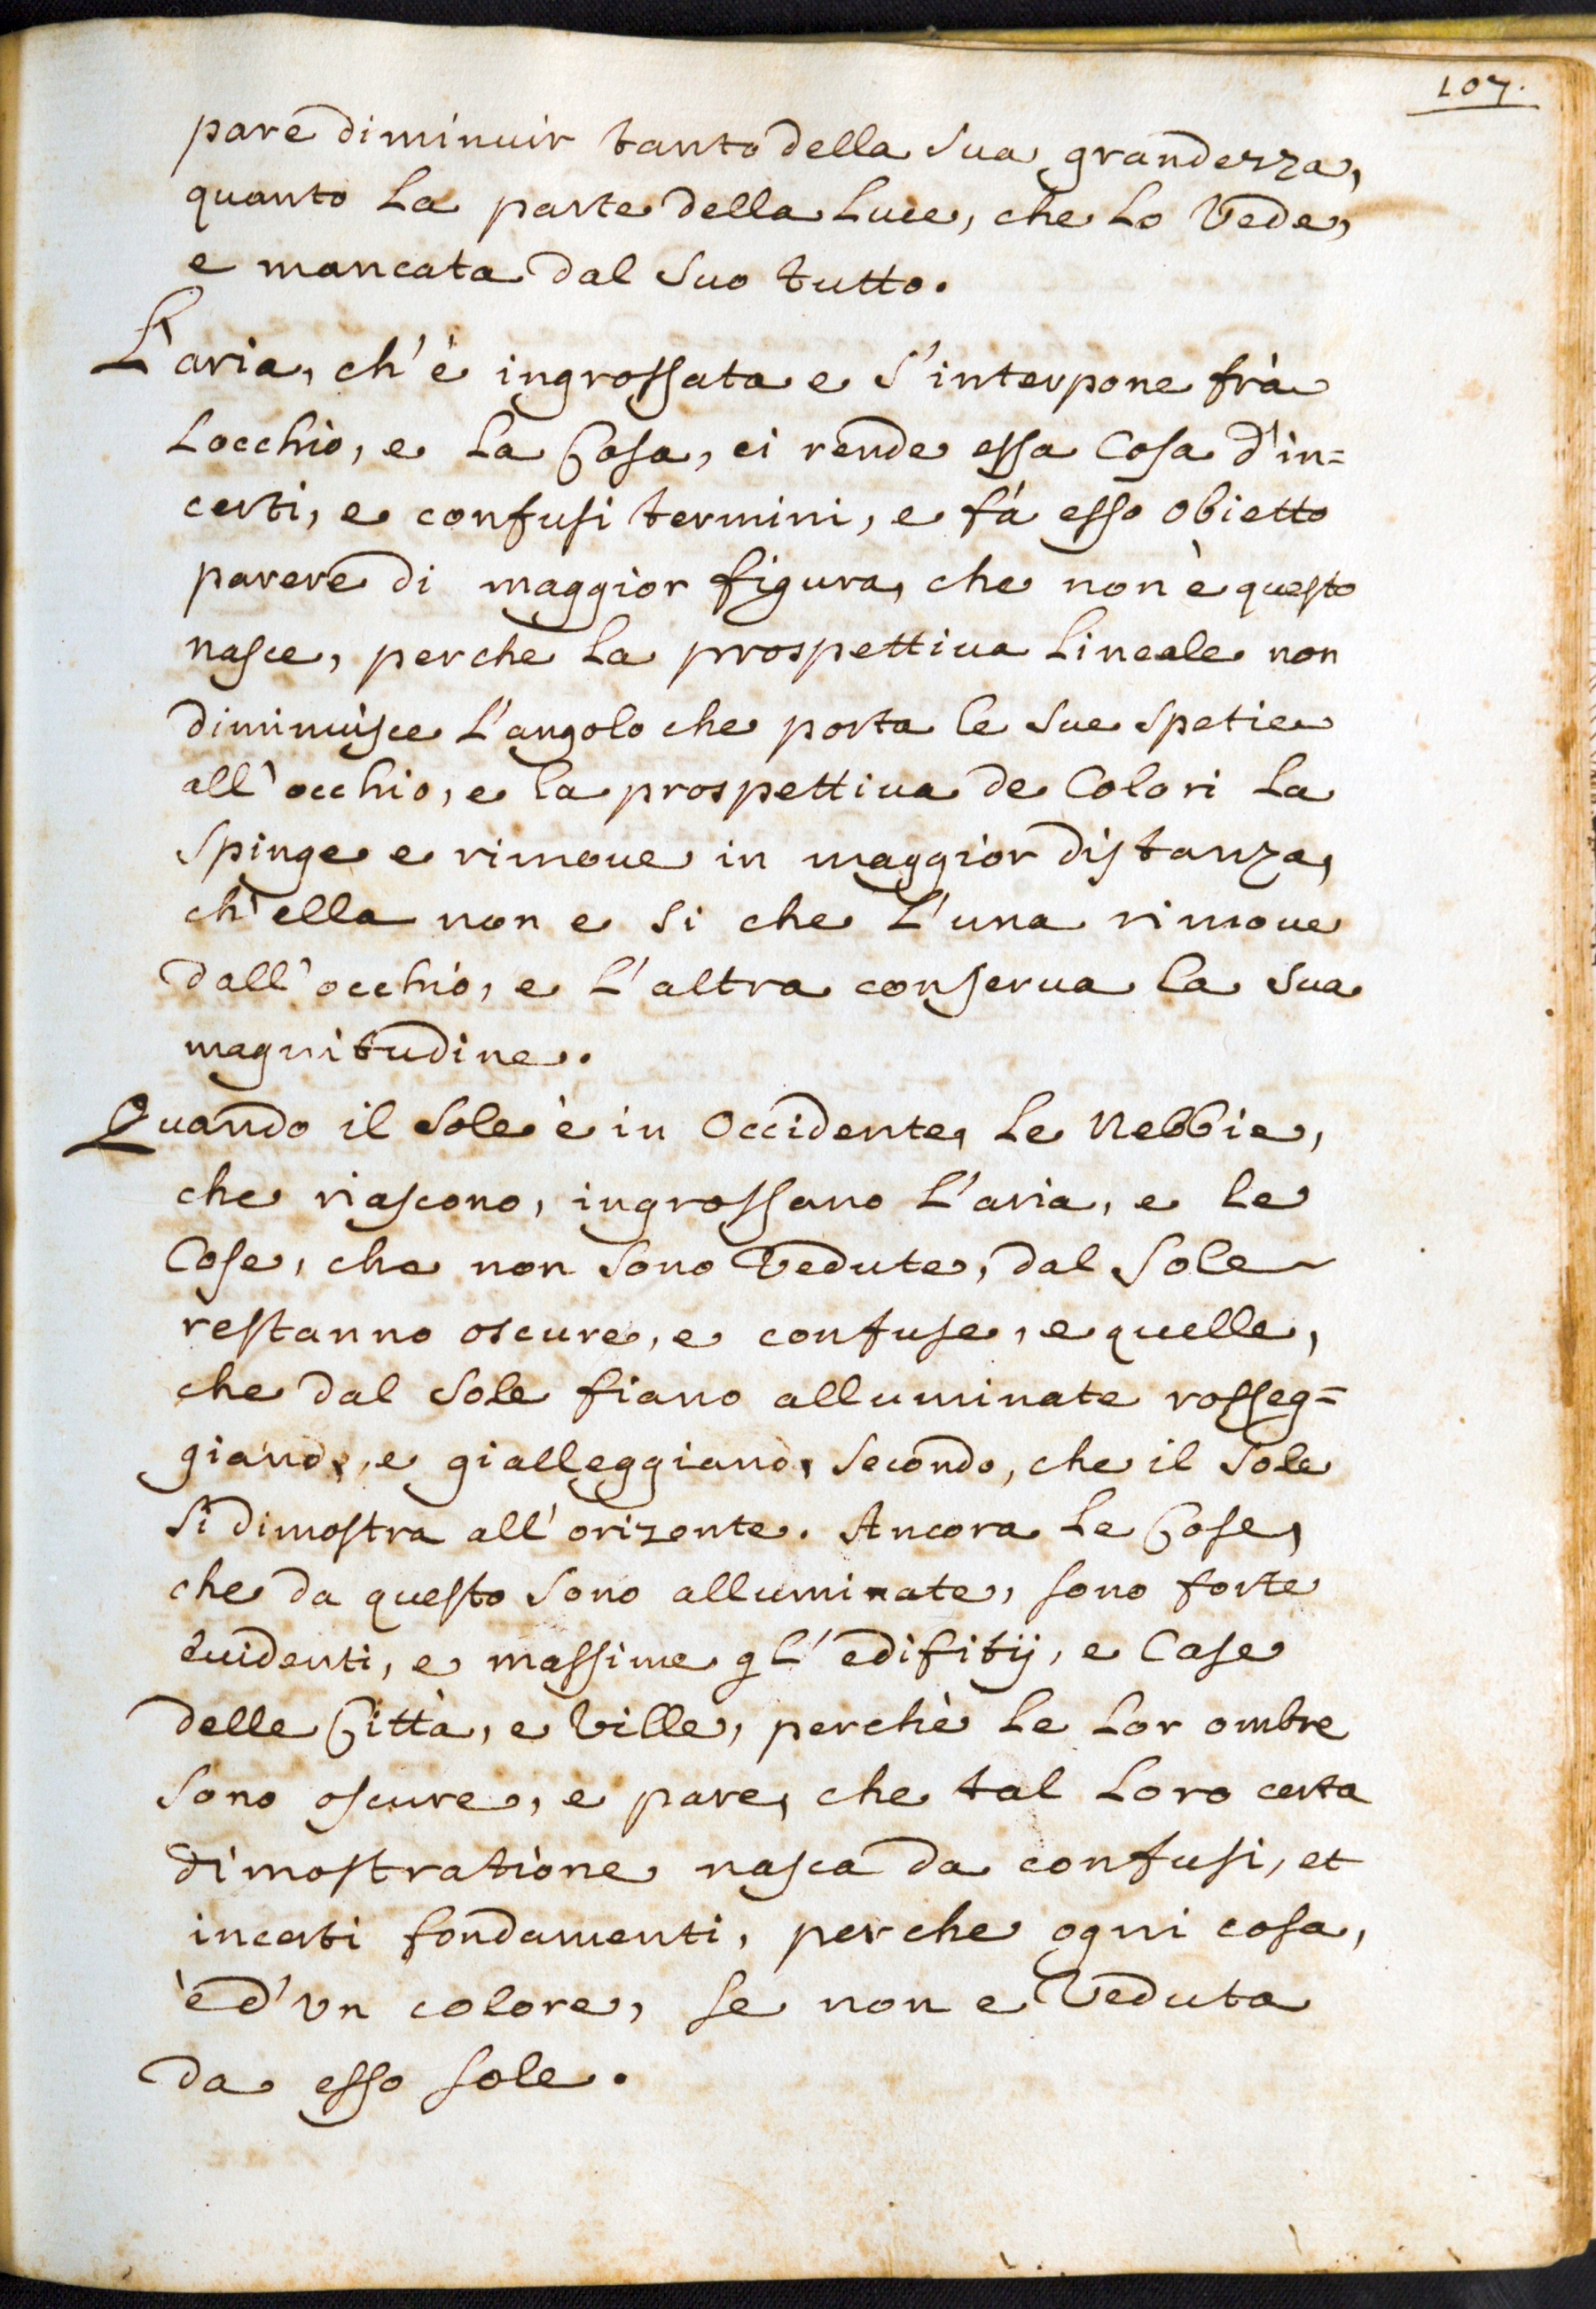 107.
pare diminuir tanto della sua grandezza,
quanto la parte della luce, che lo vede,
e mancata dal suo tutto.
L'aria, ch'è ingrossata e s'interpone frà
locchio, e la Cosa, ci rende essa Cosa d'in=
certi, e confusi termini, e fà esso obietto
parere di maggior figura, che non è questo
nasce, perche la prospettiua lineale non
diminuisce l'angolo che porta le sue spetie
all'occhio, e la prospettiua de Colori la
spinge e rimoue in maggior distanza,
ch'ella non e si che l'una rimoue
dall'occhio, e l'altra conserua la sua
magnitudine.
Quando il sole è in Occidente, le Nebbie,
che riascono, ingrossano l'aria, e le
Cose, che non sono Vedute, dal Sole
restanno oscure, e confuse, e quelle,
che dal sole fiano alluminate rosseg=
giano, e gialleggiano, secondo, che il sole
si dimostra all'orizonte. Ancora le Cose,
che da questo sono alluminate, sono forte
euidenti, e massime gl'edifitij, e Case
delle Città, e Ville, perchè le lor ombre
sono oscure, e pare, che tal loro certa
dimostratione nasca da confusi, et
incerti fondamenti, perche ogni cosa,
è d'vn colore, se non e Veduta
da esso sole.